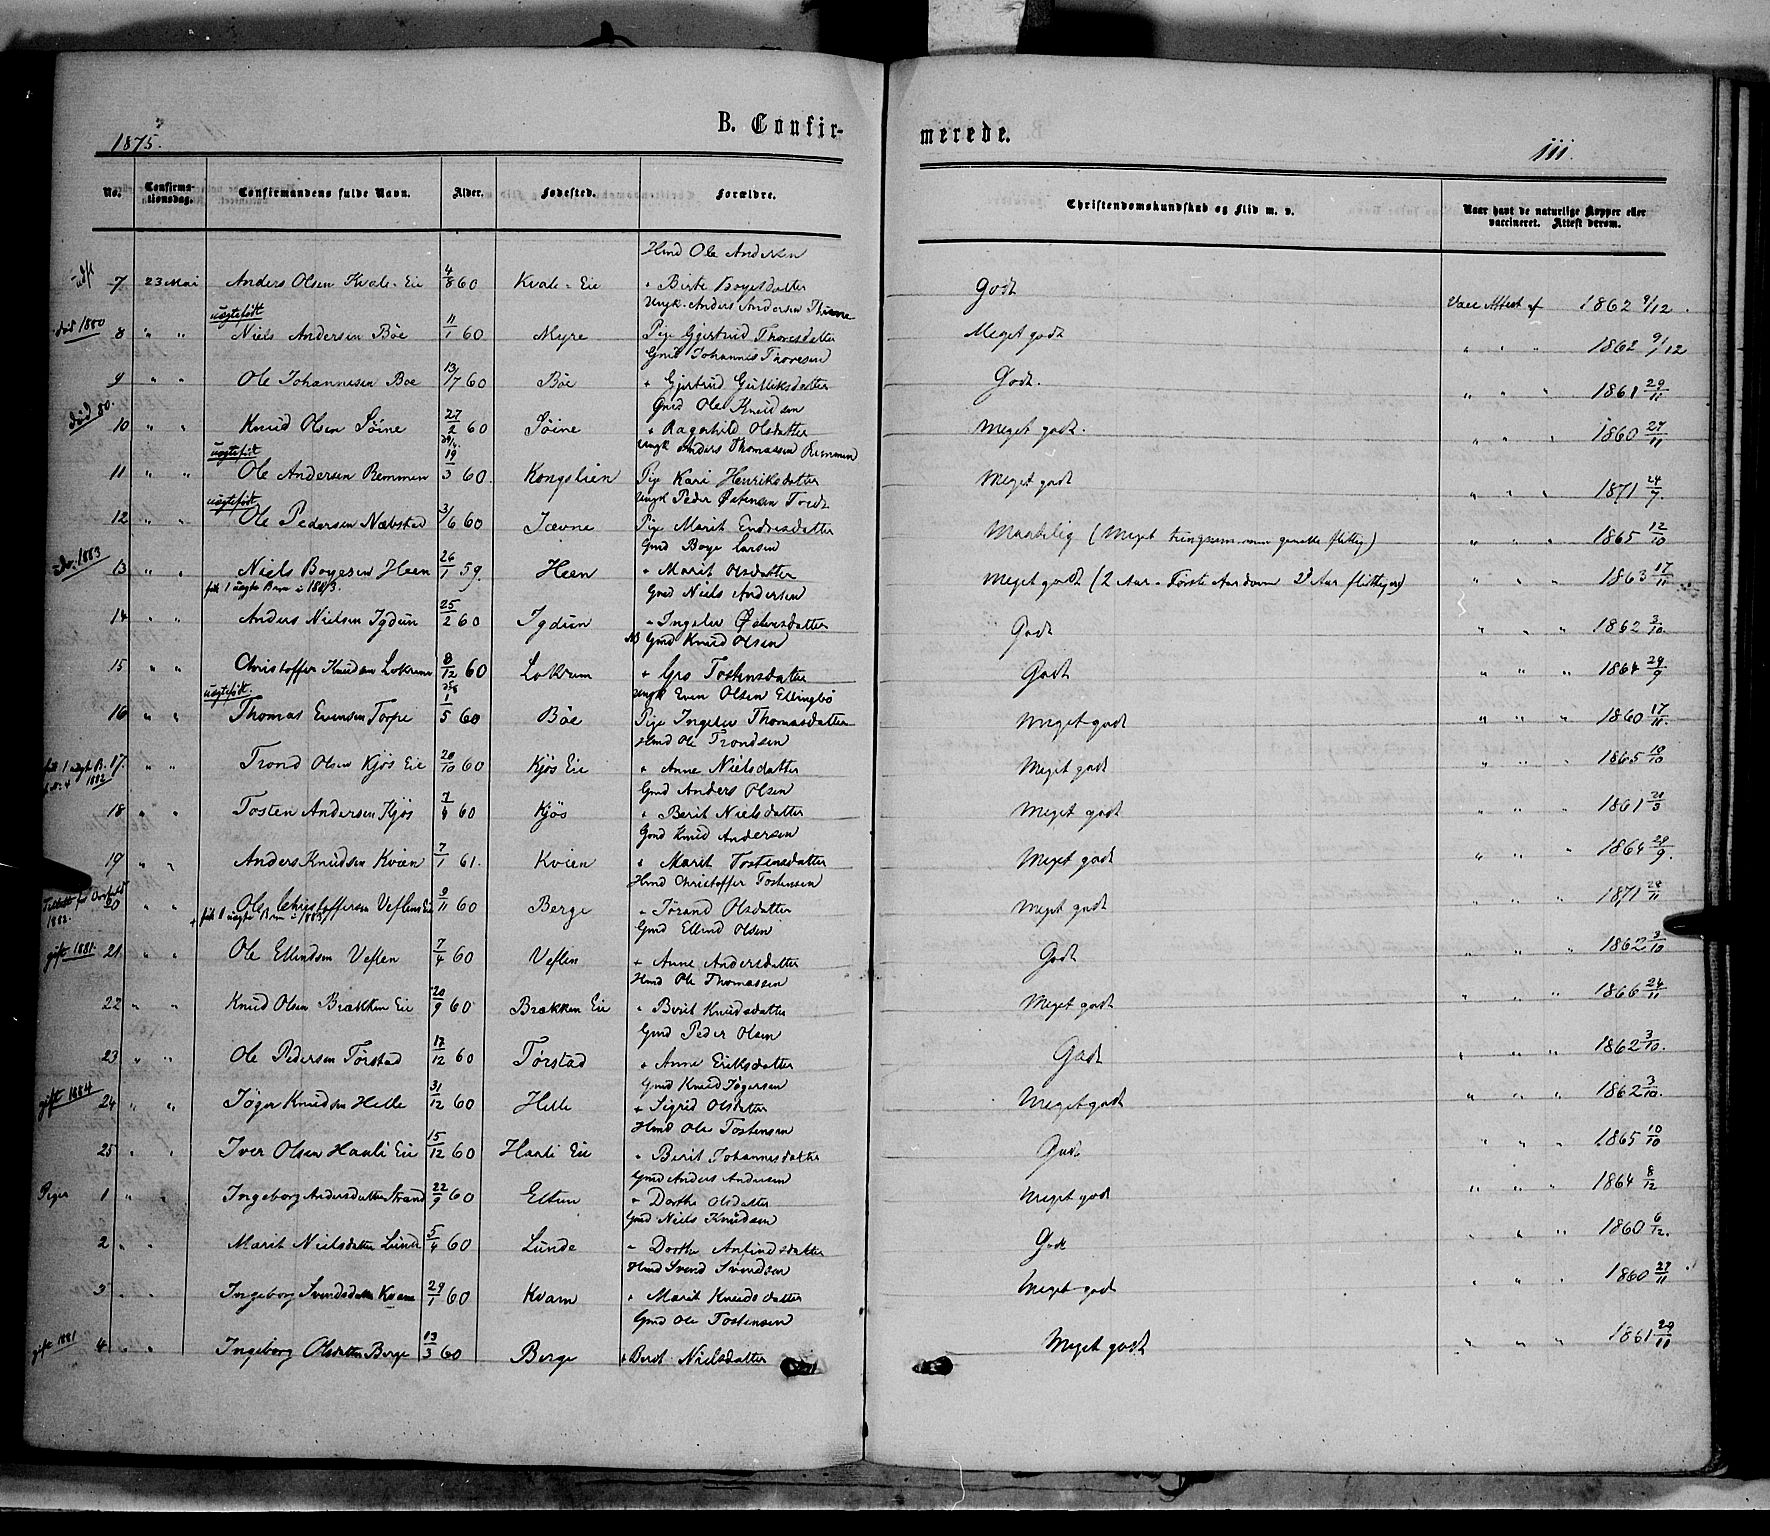 1875.
B. Confir-
merede.
111.
No.
Confirma-
tionsdag.
Confirmandens fulde Navn.
Alder.
Fødested.
Forældre.
Christendomskundskab og Flid m. v.
Naar havt de naturlige Kopper eller
vaccineret. Attest derom.
Hmd Ole Andersen
udfl 7 23 Mai Anders Olsen Kvale-Eie 4/8 60 Kvale-Eie " Birte Boyesdatter Godt Vacc Attest af 1862 9/12.
uægtefødt Ungk. Anders Andersen
død 1880 8 " " Niels Andersen Bøe 11/1 60 Myre Pige Gjertrud Thoresdatter Meget godt " " " 1862 9/12
Gmd Johannes Thoresen
9 " " Ole Johannesen Bøe 13/7 60 Bøe " Gjertrud Gulliksdatter Godt. " " " 1861 29/11
Gmd Ole Knudsen
død 80. 10 " " Knud Olsen Søine 27/2 60 Søine " Ragnhild Olsdatter Meget godt. " " " 1860 27/11
uægtefødt Ungk Anders Thomassen Remmen
11 " " Ole Andersen Remmen 19/3 60. Kongslien Pige Kari Henriksdatter Meget godt " " " 1871 24/7
uægtefødt Ungk Peder Østensen
12 " " Ole Pedersen Næbstad 3/6 60 Jævne Pige Marit Endresdatter Maadelig (Meget tungnem men ganske flittig) " " " 1865 12/10
Gmd Boye Larsen
1883 13 " " Niels Boyesen Heen 26/1 59. Heen " Marit Olsdatter Meget godt (2 Aar. Første Aar doven 2det Aar flittigere) " " " 1863 17/11
fik 1 uægte Barn i 1883. Gmd Niels Andersen
14 " " Anders Nielsen Igdun 25/2 60 Igdun " Ingeler Østensdatter Godt " " " 1862 3/10.
Gmd Knud Olsen
15 " " Christoffer Knudsen Lokrem 8/12 60 Lokrem " Gro Tostensdatter Godt " " " 1864 29/9
uægtefødt. Ungk Even Olsen Ellingbø
16 " " Thomas Evensen Torpe 1/5 60 Bøe Pige Ingeler Thomasdatter Meget godt " " " 1860 17/11.
Hmd Ole Trondsen
fik 1 uægt B. 17. " " Trond Olsen Kjøs Eie 20/10 60 Kjøs Eie " Anne Nielsdatter Meget godt " " " 1865 10/10
1882 Gmd Anders Olsen
18 " " Tosten Andersen Kjøs 7/4 60 Kjøs " Berit Nielsdatter Meget godt " " " 1861 21/3
Gmd Knud Andersen
19 " " Anders Knudsen Kvien 7/1 61. Kvien " Marit Tostensdatter Meget godt " " " 1864 29/9.
Hmd Christoffer Tostensen
20 " " Ole Christoffersen Veflen Eie 9/11 60 Berge " Jørand Olsdatter Meget godt " " " 1871 28/11
1882. fik 1 uægte Barn i 1883 Gmd Ellend Olsen
gift 1881. 21 " " Ole Ellendsen Veflen 7/4 60 Veflen " Anne Andersdatter Godt " " " 1862 3/10
Hmd Ole Thomassen
22 " " Knud Olsen Brækken Eie 20/9 60 Brækken Eie " Berit Knudsdatter Meget godt " " " 1866 24/11
Gmd Peder Olsen
23 " " Ole Pedersen Tørstad 17/12 60 Tørstad " Anne Eriksdatter Godt " " " 1862 3/10.
Gmd Knud Jøgersen
gift 1884 24 " " Jøger Knudsen Helle 31/12 60 Helle " Sigrid Olsdatter Meget godt " " " 1862 3/10.
Hmd Ole Tostensen
25 " " Iver Olsen Haali Eie 15/12 60 Haali Eie " Berit Johannesdatter Godt " " " 1865 10/10
Gmd Anders Andersen
Piger 1 " " Ingeborg Andersdatter Strand 22/9 60 Eltun " Dorthe Olsdatter Meget godt " " " 1864 8/12
Gmd Niels Knudsen
2 " " Marit Nielsdatter Lunde 5/4 60 Lunde " Dorthe Anfindsdatter Godt " " " 1860 6/12.
Hmd Svend Svendsen
3 " " Ingeborg Svendsdatter Kvam 29/1 60 Kvam " Marit Knudsdatter Meget godt " " " 1860 27/11
Gmd Ole Tostensen
gift 1881 4 " " Ingeborg Olsdatter Berge 13/3 60 Berge " Berit Nielsdatter Meget godt " " " 1861 29/11